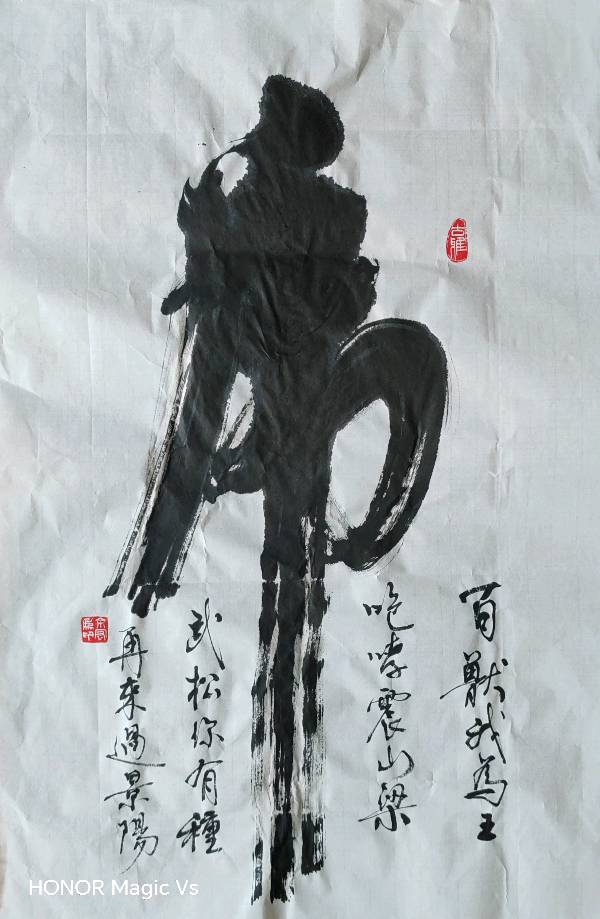 百獸我為王
咆哮震山梁
武松你有種
再來過景陽
HONOR Magic Vs